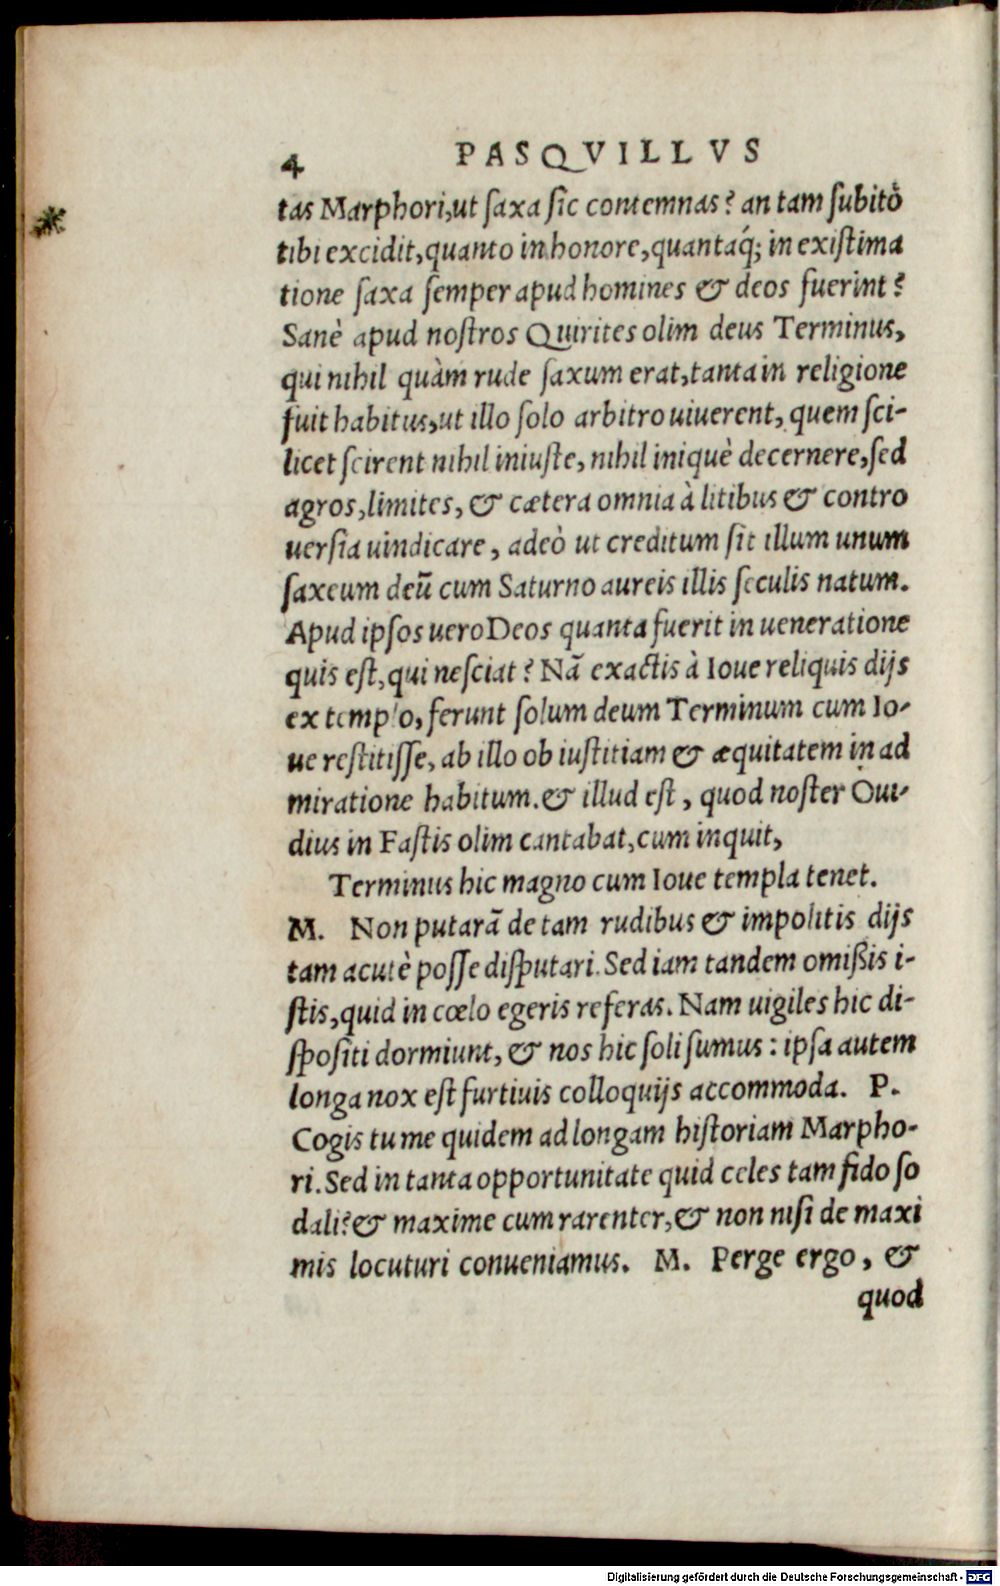 4 PASQVILLVS
tas Marphori, ut ſaxa ſic contemnas? an tam ſubitò
tibi excidit, quanto in honore, quantaq́; in exiſtima
tione ſaxa ſemper apud homines & deos fuerint?
Sanè apud noſtros Quirites olim deus Terminus,
qui nihil quàm rude ſaxum erat, tanta in religione
fuit habitus, ut illo ſolo arbitro uiuerent, quem ſci-
licet ſcirent nihil iniuſte, nihil iniquè decernere, ſed
agros, limites, & cætera omnia à litibus & contro
uerſia uindicare, adeò ut creditum ſit illum unum
ſaxeum deũ cum Saturno aureis illis ſeculis natum.
Apud ipſos uero Deos quanta fuerit in ueneratione
quis eſt, qui neſciat? Nã exactis à Ioue reliquis dijs
ex templo, ferunt ſolum deum Terminum cum Io-
ue reſtitiſſe, ab illo ob iuſtitiam & æquitatem in ad
miratione habitum. & illud eſt, quod noſter Oui-
dius in Faſtis olim cantabat, cum inquit,
Terminus hic magno cum Ioue templa tenet.
M. Non putarã de tam rudibus & impolitis dijs
tam acutè poſſe diſputari. Sed iam tandem omißis i-
ſtis, quid in cœlo egeris referas. Nam uigiles hic di-
ſpoſiti dormiunt, & nos hic ſoli ſumus: ipſa autem
longa nox eſt furtiuis colloquijs accommoda. P.
Cogis tu me quidem ad longam hiſtoriam Marpho-
ri. Sed in tanta opportunitate quid celes tam fido ſo
dali? & maxime cum rarenter, & non niſi de maxi
mis locuturi conueniamus. M. Perge ergo, &
quod
Digitalisierung gefördert durch die Deutsche Forschungsgemeinschaft - DFG